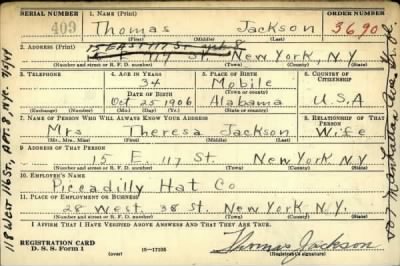 SERIAL NUMBER
1. NAME (Print)
ORDER NUMBER
409
Thomas Jackson
3690
(First) (Middle) (Last)
2. ADDRESS (Print)
15 EAST 117 St
117 St. New York, N.Y.
(Number and street or R. F. D. number) (Town) (County) (State)
3. TELEPHONE
4. AGE IN YEARS
5. PLACE OF BIRTH
6. COUNTRY OF CITIZENSHIP
34
Mobile
DATE OF BIRTH
(Town or county)
Oct 25 1906
Alabama
U.S.A
(Exchange) (Number)
(Mo.) (Day) (Yr.)
(State or country)
7. NAME OF PERSON WHO WILL ALWAYS KNOW YOUR ADDRESS
8. RELATIONSHIP OF THAT PERSON
Mrs Theresa Jackson
Wife
(Mr., Mrs., Miss) (First) (Middle) (Last)
9. ADDRESS OF THAT PERSON
15 E. 117 St. New York N.Y
(Number and street or R. F. D. number) (Town) (County) (State)
10. EMPLOYER'S NAME
Piccadilly Hat Co
11. PLACE OF EMPLOYMENT OR BUSINESS
28 West. 38 St. New York N.Y.
(Number and street or R. F. D. number) (Town) (County) (State)
I AFFIRM THAT I HAVE VERIFIED ABOVE ANSWERS AND THAT THEY ARE TRUE.
REGISTRATION CARD
D. S. S. Form 1
(over)
16—17105
Thomas Jackson
(Registrant's signature)
118 West 116 St, Apt. 8, NYC.
507 Manhattan Ave